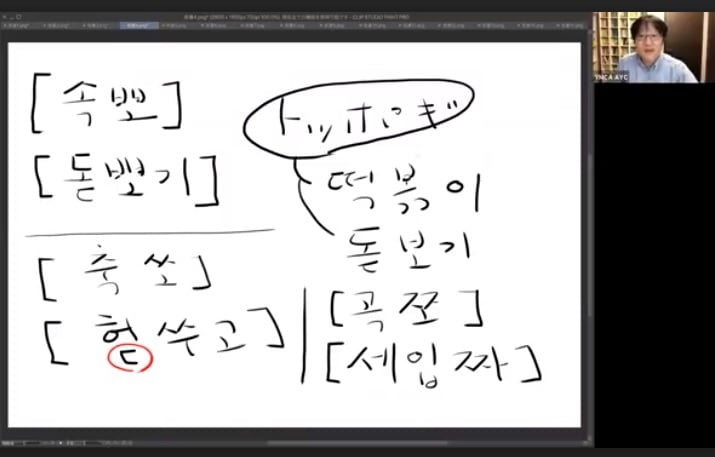 CLIP STUDIO PAINT PRO
YMCA AYC
[속뽀]
[돋뽀기]
[축쏘]
[헏쑤고]
トッポギ
떡볶이
돋보기
[곡쪼]
[세입짜]